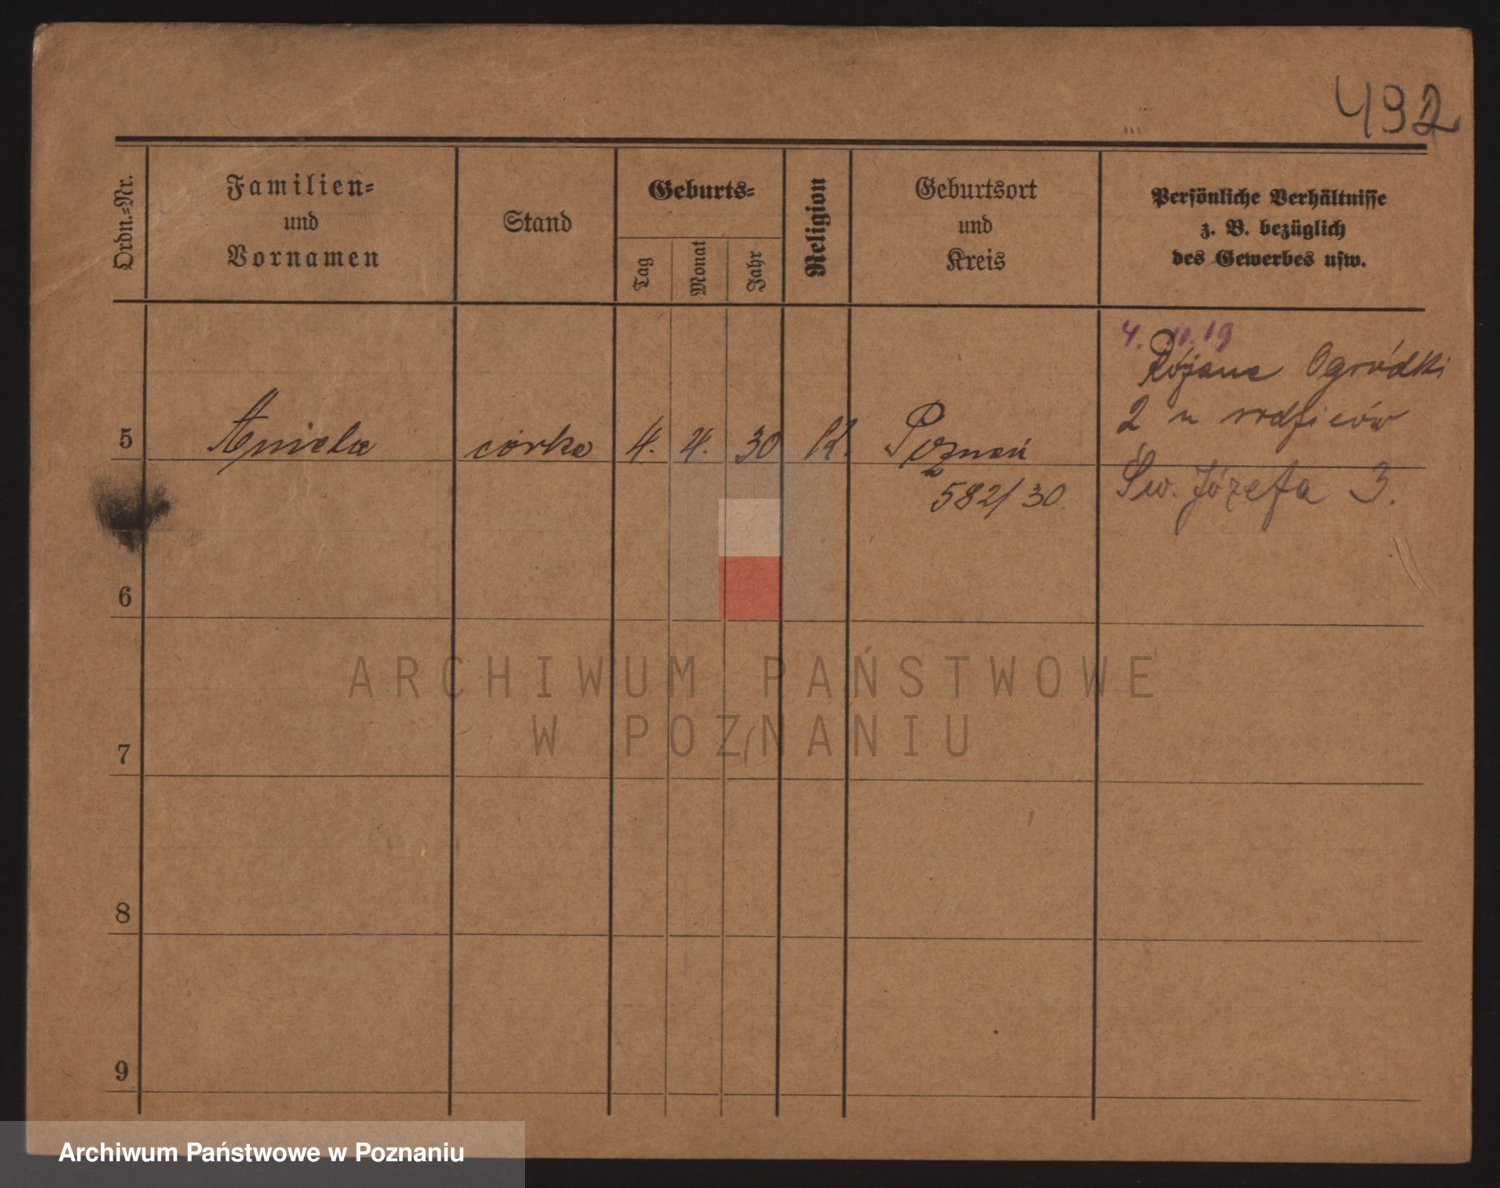 492
Ordn.-Nr.
Familien-
und
Vornamen
Stand
Geburts-
Tag
Monat
Jahr
Religion
Geburtsort
und
Kreis
Persönliche Verhältnisse
z. B. bezüglich
des Gewerbes usw.
4. 10. 19
Różane Ogródki
2 u rodziców
5 Aniela córka 4. 4. 30 K. Poznań
582/30.
Św. Józefa 3.
6
ARCHIWUM PAŃSTWOWE
W POZNANIU
7
8
9
Archiwum Państwowe w Poznaniu